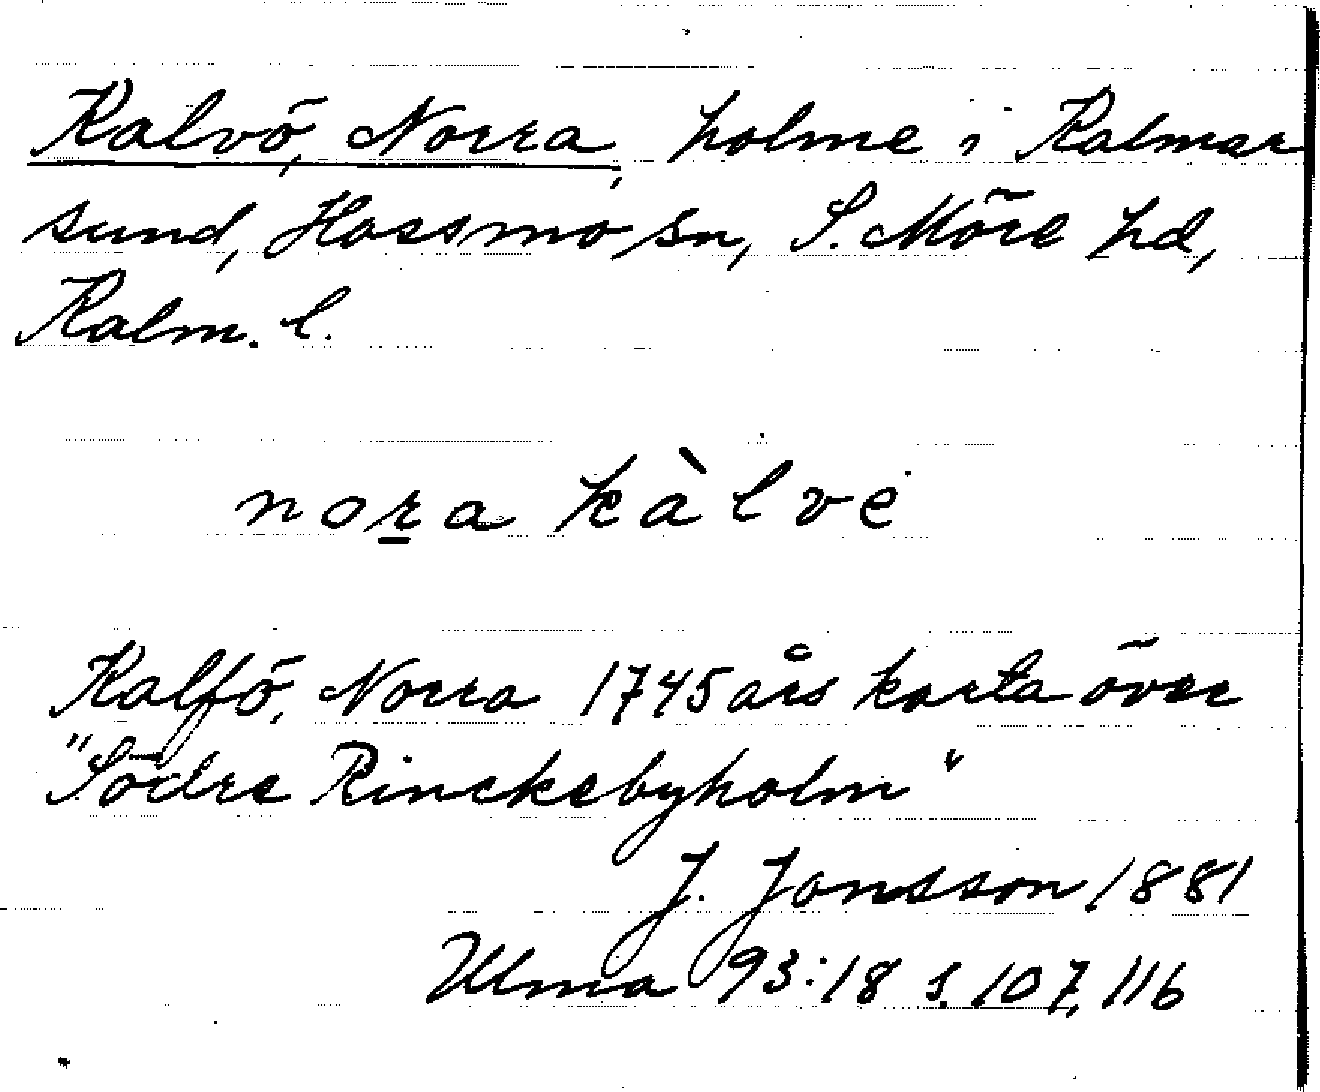 Kalvö, Norra, holme i Kalmar
sund, Hossmo sn, S. Möre hd,
Kalm. l.
nora kàlve
Kalfö, Norra 1745 års karta över
"Södre Rinckebyholm"
J. Jonsson, 1881
Ulma 93:18 s. 107, 116